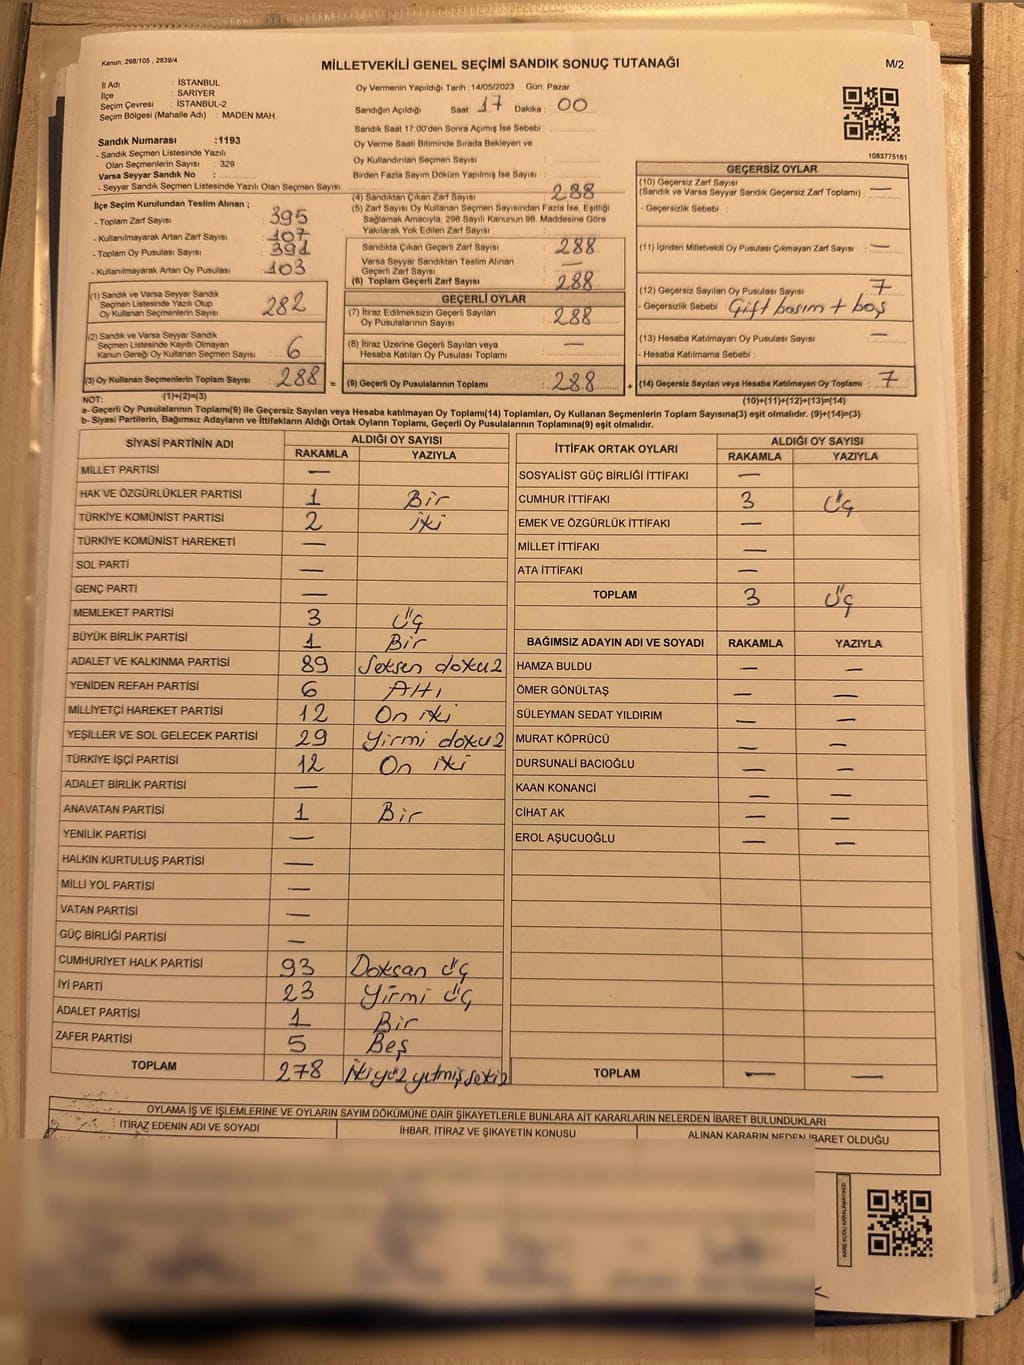 Kanun; 298/105 , 2839/4
MİLLETVEKİLİ GENEL SEÇİMİ SANDIK SONUÇ TUTANAĞI
M/2
İl Adı : İSTANBUL
İlçe : SARIYER
Seçim Çevresi : İSTANBUL-2
Seçim Bölgesi (Mahalle Adı) : MADEN MAH.
Sandık Numarası :1193
- Sandık Seçmen Listesinde Yazılı
Olan Seçmenlerin Sayısı : 329
Varsa Seyyar Sandık No :
- Seyyar Sandık Seçmen Listesinde Yazılı Olan Seçmen Sayısı:
İlçe Seçim Kurulundan Teslim Alınan ;
- Toplam Zarf Sayısı : 395
- Kullanılmayarak Artan Zarf Sayısı : 107
- Toplam Oy Pusulası Sayısı : 391
- Kullanılmayarak Artan Oy Pusulası : 103
(1) Sandık ve Varsa Seyyar Sandık
Seçmen Listesinde Yazılı Olup
Oy Kullanan Seçmenlerin Sayısı : 282
(2) Sandık ve Varsa Seyyar Sandık
Seçmen Listesinde Kayıtlı Olmayan
Kanun Gereği Oy Kullanan Seçmen Sayısı : 6
(3) Oy Kullanan Seçmenlerin Toplam Sayısı : 288 =
(1)+(2)=(3)
Oy Vermenin Yapıldığı Tarih : 14/05/2023 Gün: Pazar
Sandığın Açıldığı Saat : 17 Dakika : 00
Sandık Saat 17.00'den Sonra Açılmış İse Sebebi :
Oy Verme Saati Bitiminde Sırada Bekleyen ve
Oy Kullandırılan Seçmen Sayısı :
Birden Fazla Sayım Döküm Yapılmış İse Sayısı :
(4) Sandıktan Çıkan Zarf Sayısı : 288
(5) Zarf Sayısı Oy Kullanan Seçmen Sayısından Fazla İse, Eşitliği
Sağlamak Amacıyla, 298 Sayılı Kanunun 98. Maddesine Göre
Yakılarak Yok Edilen Zarf Sayısı :
Sandıkta Çıkan Geçerli Zarf Sayısı : 288
Varsa Seyyar Sandıktan Teslim Alınan
Geçerli Zarf Sayısı : —
(6) Toplam Geçerli Zarf Sayısı : 288
GEÇERLİ OYLAR
(7) İtiraz Edilmeksizin Geçerli Sayılan
Oy Pusulalarının Sayısı : 288
(8) İtiraz Üzerine Geçerli Sayılan veya
Hesaba Katılan Oy Pusulası Toplamı : —
(9) Geçerli Oy Pusulalarının Toplamı : 288 +
1083775161
GEÇERSİZ OYLAR
(10) Geçersiz Zarf Sayısı
(Sandık ve Varsa Seyyar Sandık Geçersiz Zarf Toplamı) : —
- Geçersizlik Sebebi :
(11) İçinden Milletvekili Oy Pusulası Çıkmayan Zarf Sayısı : —
(12) Geçersiz Sayılan Oy Pusulası Sayısı : 7
- Geçersizlik Sebebi : Çift basım + boş
(13) Hesaba Katılmayan Oy Pusulası Sayısı : —
- Hesaba Katılmama Sebebi :
(14) Geçersiz Sayılan veya Hesaba Katılmayan Oy Toplamı : 7
(10)+(11)+(12)+(13)=(14)
NOT:
a- Geçerli Oy Pusulalarının Toplamı(9) ile Geçersiz Sayılan veya Hesaba katılmayan Oy Toplamı(14) Toplamları, Oy Kullanan Seçmenlerin Toplam Sayısına(3) eşit olmalıdır. (9)+(14)=(3)
b- Siyasi Partilerin, Bağımsız Adayların ve İttifakların Aldığı Ortak Oyların Toplamı, Geçerli Oy Pusulalarının Toplamına(9) eşit olmalıdır.
SİYASİ PARTİNİN ADI
ALDIĞI OY SAYISI
RAKAMLA YAZIYLA
MİLLET PARTİSİ —
HAK VE ÖZGÜRLÜKLER PARTİSİ 1 Bir
TÜRKİYE KOMÜNİST PARTİSİ 2 iki
TÜRKİYE KOMÜNİST HAREKETİ —
SOL PARTİ —
GENÇ PARTİ —
MEMLEKET PARTİSİ 3 Üç
BÜYÜK BİRLİK PARTİSİ 1 Bir
ADALET VE KALKINMA PARTİSİ 89 Seksen dokuz
YENİDEN REFAH PARTİSİ 6 Altı
MİLLİYETÇİ HAREKET PARTİSİ 12 On iki
YEŞİLLER VE SOL GELECEK PARTİSİ 29 Yirmi dokuz
TÜRKİYE İŞÇİ PARTİSİ 12 On iki
ADALET BİRLİK PARTİSİ —
ANAVATAN PARTİSİ 1 Bir
YENİLİK PARTİSİ —
HALKIN KURTULUŞ PARTİSİ —
MİLLİ YOL PARTİSİ —
VATAN PARTİSİ —
GÜÇ BİRLİĞİ PARTİSİ —
CUMHURİYET HALK PARTİSİ 93 Doksan üç
İYİ PARTİ 23 Yirmi üç
ADALET PARTİSİ 1 Bir
ZAFER PARTİSİ 5 Beş
TOPLAM 278 İkiyüz yetmiş sekiz
İTTİFAK ORTAK OYLARI
ALDIĞI OY SAYISI
RAKAMLA YAZIYLA
SOSYALİST GÜÇ BİRLİĞİ İTTİFAKI —
CUMHUR İTTİFAKI 3 Üç
EMEK VE ÖZGÜRLÜK İTTİFAKI —
MİLLET İTTİFAKI —
ATA İTTİFAKI —
TOPLAM 3 Üç
BAĞIMSIZ ADAYIN ADI VE SOYADI RAKAMLA YAZIYLA
HAMZA BULDU — —
ÖMER GÖNÜLTAŞ — —
SÜLEYMAN SEDAT YILDIRIM — —
MURAT KÖPRÜCÜ — —
DURSUNALİ BACIOĞLU — —
KAAN KONANCİ — —
CİHAT AK — —
EROL AŞUCUOĞLU — —
TOPLAM — —
OYLAMA İŞ VE İŞLEMLERİNE VE OYLARIN SAYIM DÖKÜMÜNE DAİR ŞİKAYETLERLE BUNLARA AİT KARARLARIN NELERDEN İBARET BULUNDUKLARI
İTİRAZ EDENİN ADI VE SOYADI
İHBAR, İTİRAZ VE ŞİKAYETİN KONUSU
ALINAN KARARIN NEDEN İBARET OLDUĞU
KARE KODU KARALAMAYINIZ!